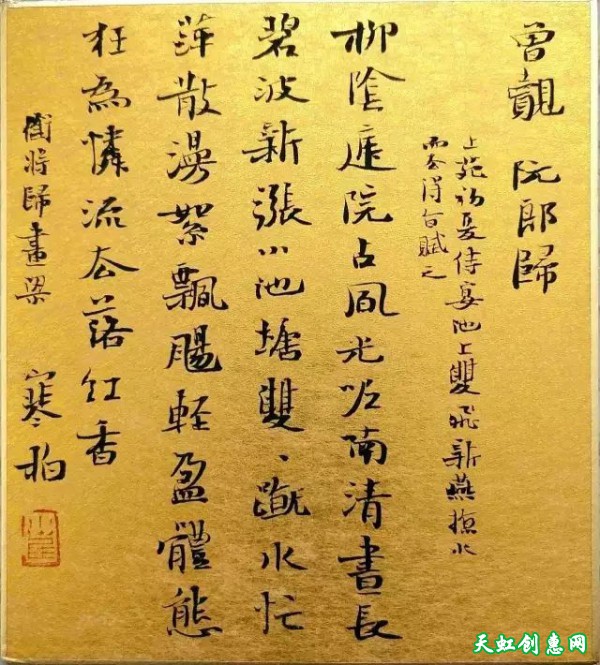 曾覿 阮郎歸
上苑初夏侍宴池上雙飛新燕掠水
而去得旨賦之
柳陰庭院占風光呢喃清晝長
碧波新漲小池塘雙、蹴水忙
萍散漫絮飄颺輕盈體態
狂為憐流去落紅香
銜將歸畫梁 寒柏
天虹创惠网